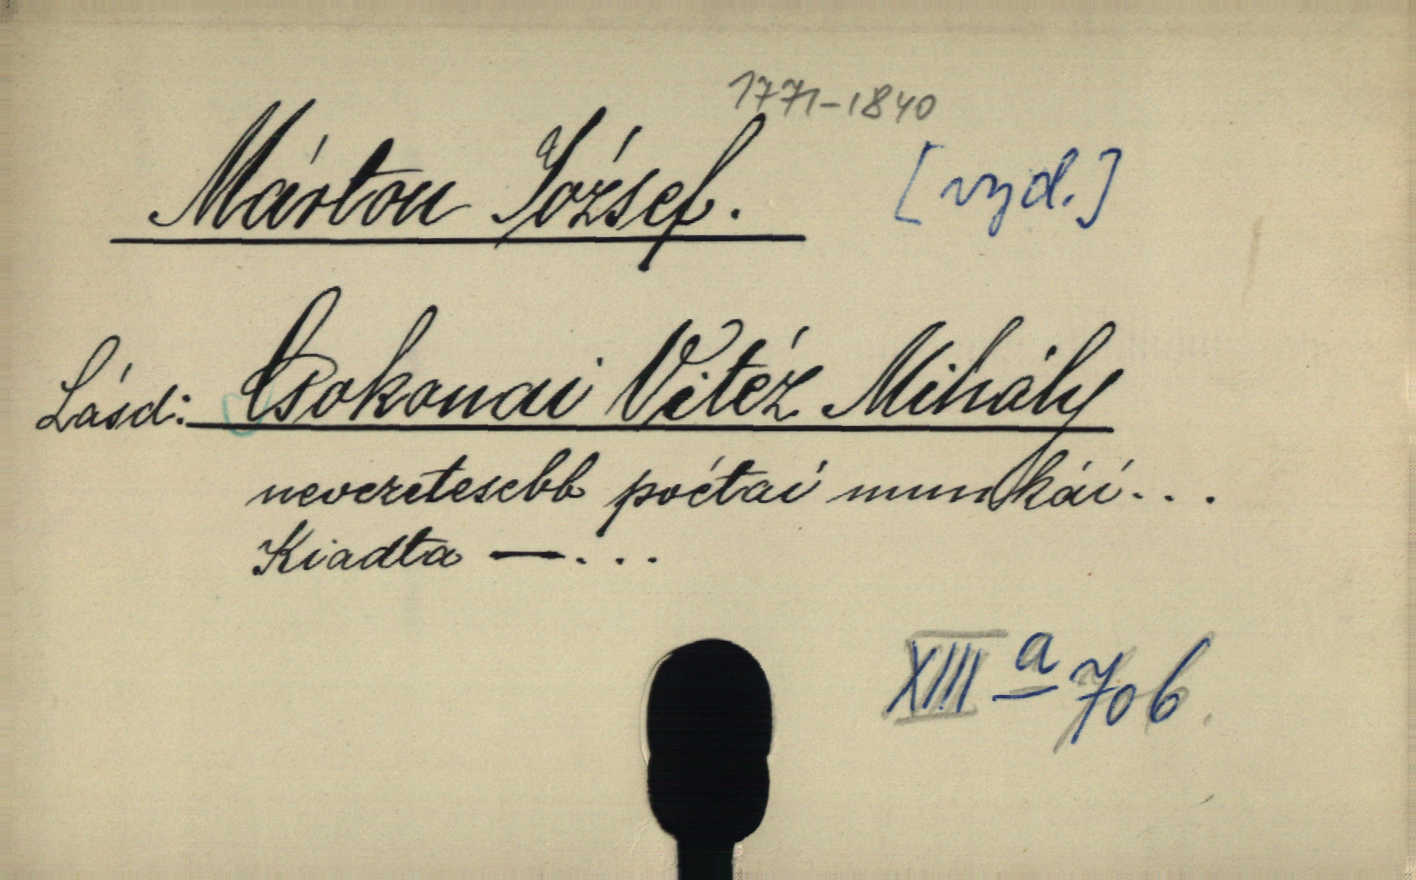 1771-1840
Márton József. [vyd.]
Lásd: Csokonai Vitéz Mihály
nevezetesebb poétai munkái...
Kiadta —...
XIII a 706